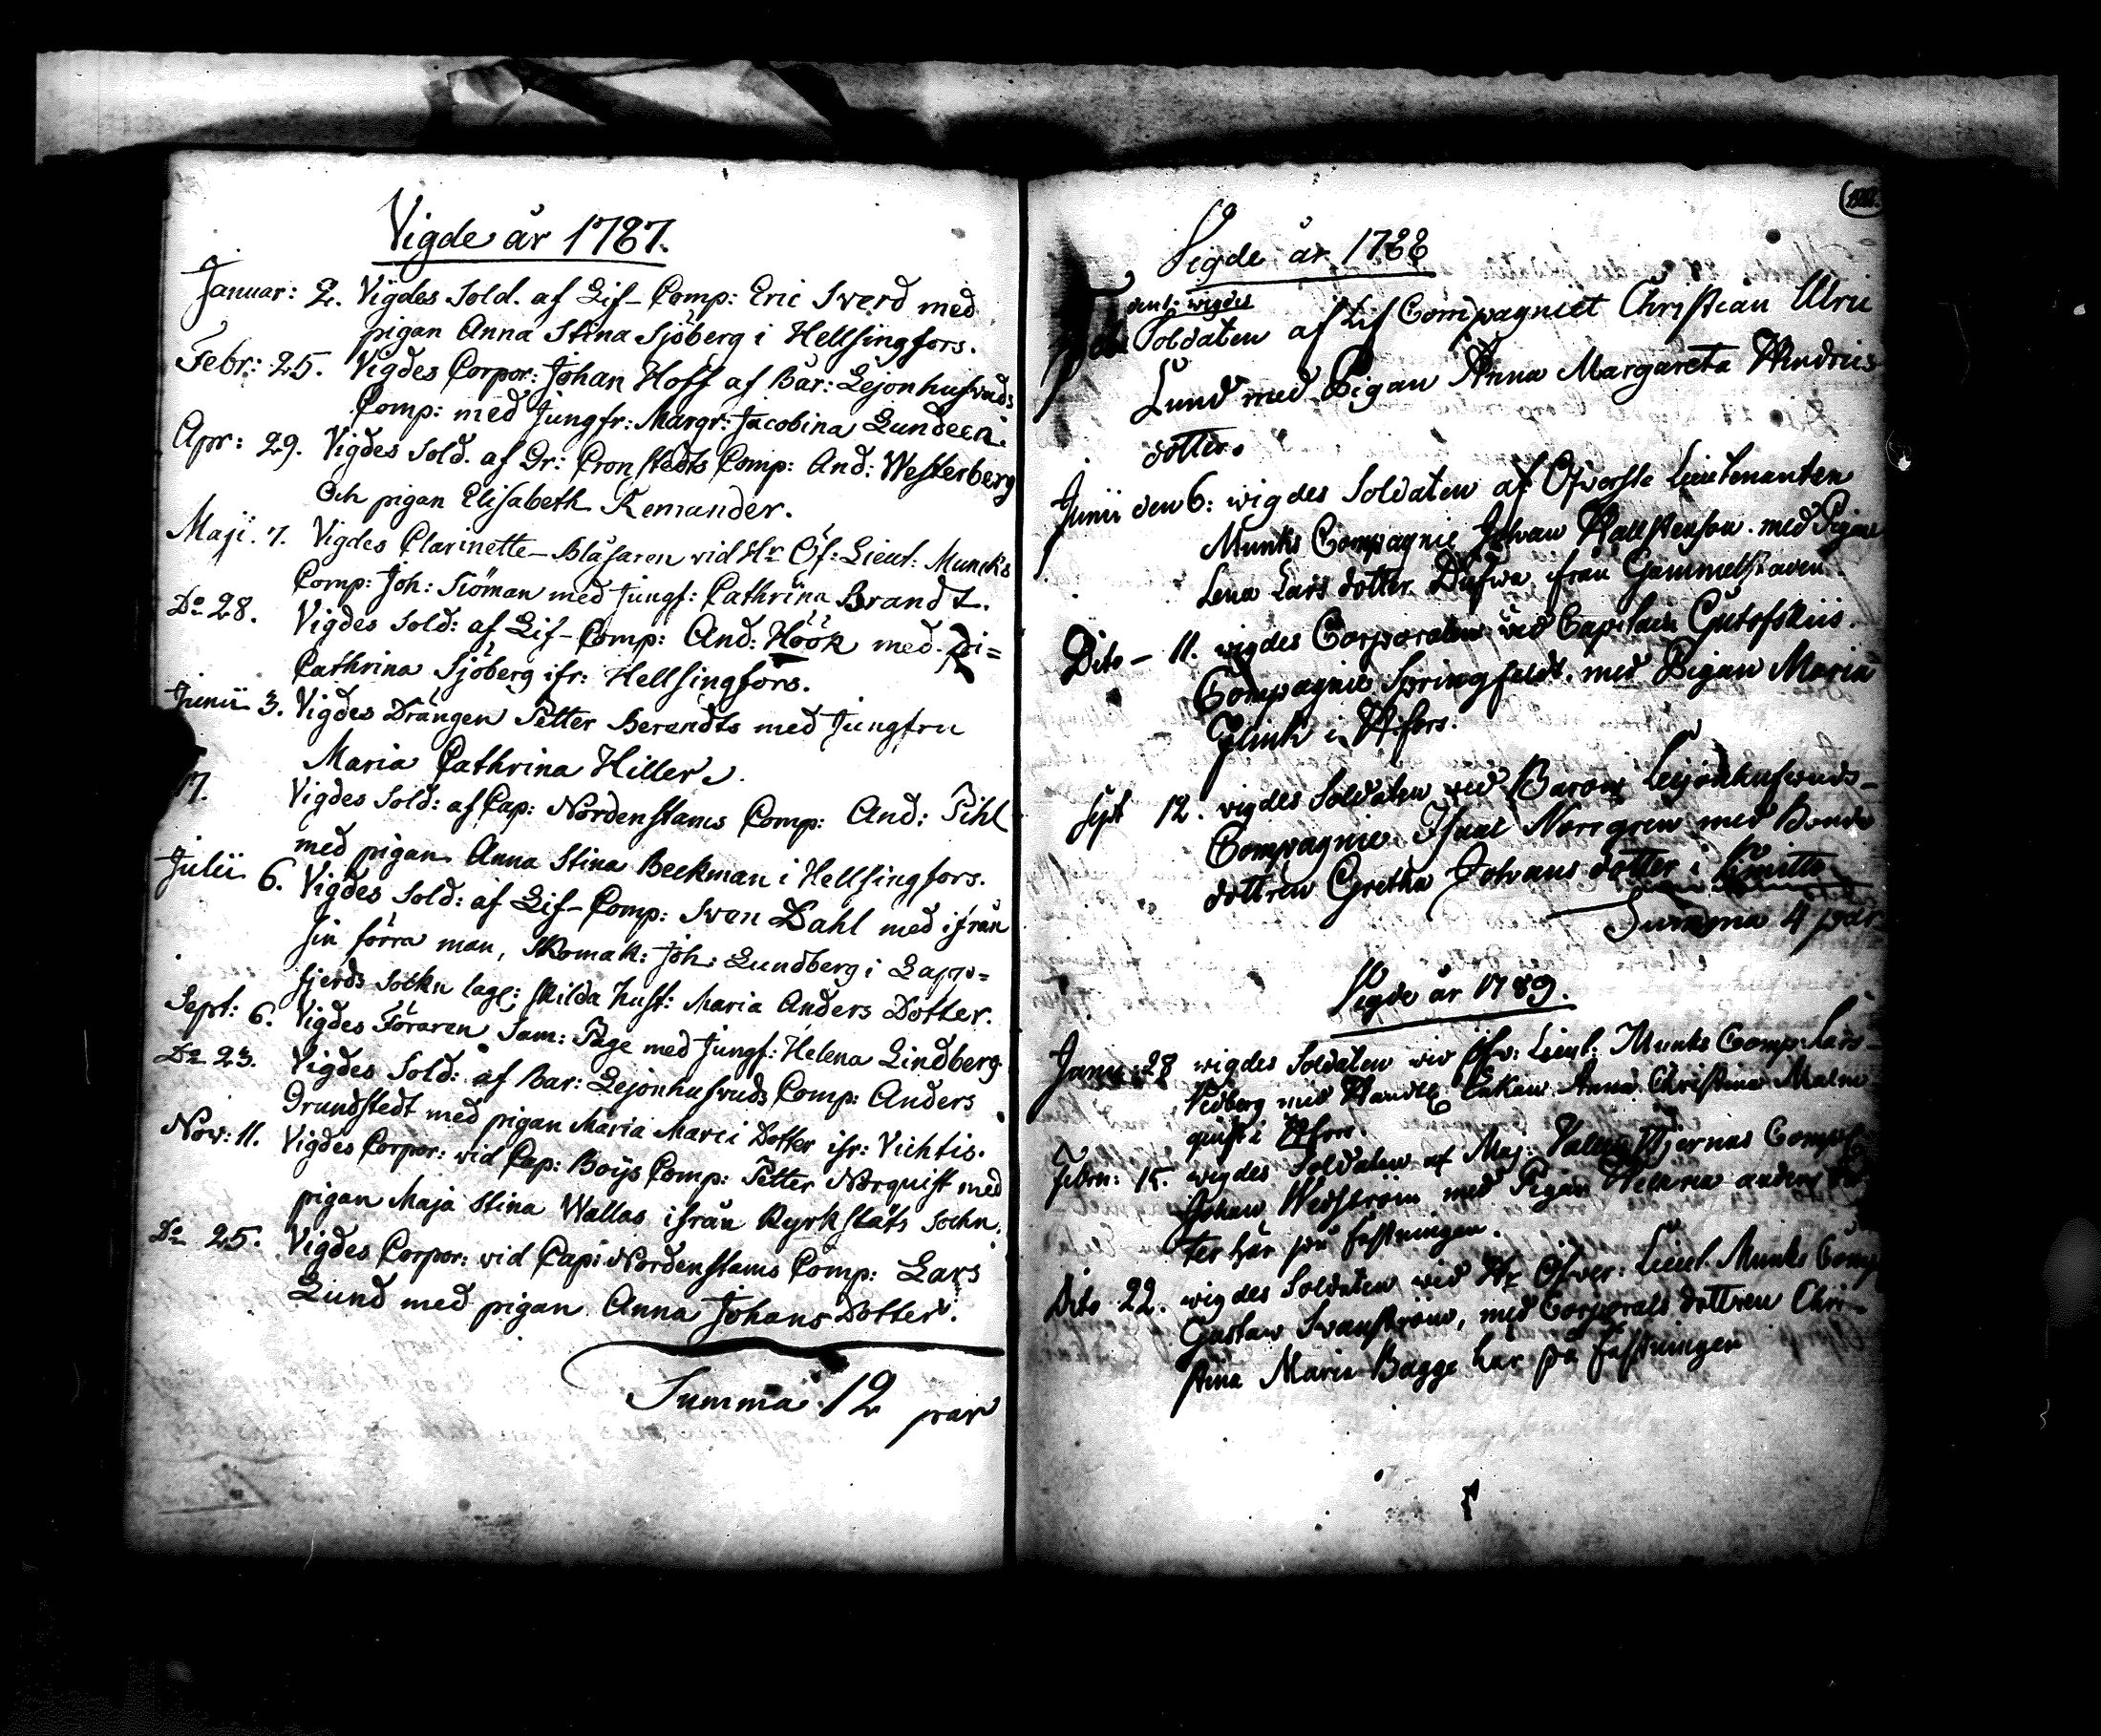 Vigde år 1787.
Januar: 2. Vigdes Sold. af Lif-Comp: Eric Sverd med
pigan Anna Stina Sjöberg i Hellsingfors.
Febr: 25. Vigdes Corpor: Johan Hoff af Bar: Lejonhufvuds
Comp: med Jungfr: Margr: Jacobina Lundeen.
Apr: 29. Vigdes Sold. af Gr: Cronstedts Comp: And: Westerberg
Och pigan Elisabeth Remander.
Maji. 7. Vigdes Clarinette-Blåsaren vid Hr Öf: Lieut: Muncks
Comp: Joh: Siöman med Jungf: Cathrina Brandt.
Do 28. Vigdes Sold: af Lif-Comp: And: Höök med Pi=
Cathrina Sjöberg ifr: Hellsingfors.
Junii 3. Vigdes Drängen Petter Berendts med Jungfru
Maria Cathrina Hiller.
17. Vigdes Sold: af Cap: Nordenstams Comp: And: Pihl
med pigan Anna Stina Beckman i Hellsingfors.
Julii 6. Vigdes Sold: af Lif-Comp: Sven Dahl med ifrån
sin förra man, Skomak: Joh: Lundberg i Lapp=
fjerds Sockn lagl: skilda hust: Maria Anders Dotter.
Sept: 6. Vigdes Föraren Sam: Page med Jungf: Helena Lindberg
Do 23. Vigdes Sold: af Bar: Lejonhufvuds Comp: Anders
Grundstedt med pigan Maria Marci Dotter ifr: Vichtis.
Nov: 11. Vigdes Corpor: vid Cap: Boijs Comp: Petter Norquist med
pigan Maja Stina Wallas ifrån Kyrkstäts Sochn.
Do 25. Vigdes Corpor: vid Cap: Nordenstams Comp: Lars
Lund med pigan Anna Johans Dotter.
Summa 12 par
Vigde år 1788
wigdes
Soldaten af Lif Compagniet Christian Ulric
Lund med Pigan Anna Margareta Hindrics
dotter.
Junii den 6: wigdes Soldaten af Öfverste Lieutenanten
Munks Compagnie Johan Hallstenson med Pigan
Lena Lars dotter Dufva ifrån Gammelstaden.
Dito - 11. wigdes Corporalen wid Capitain Gutofskiis
Compagnie Springfeldt med Pigan Maria
Flink i H:fors.
Sept 12. wigdes Soldaten wid Baron Leijonhufvuds-
Compagnie Isaac Norrgren med Bonde
dottren Gretha Johans dotter i
Summa 4 par
Vigde år 1789.
Janu: 28 wigdes Soldaten wid Öfv: Lieut: Munks Comp: Lars
Vedberg med Handl: Enkan Anna Christina Malm
quist i H:fors.
Febru: 15. wigdes Soldaten af Maj: Compl
Johan Wedström med Pigan Helena anders
ter här på fästningen.
Dito 22. wigdes Soldaten wid Hr Öfver: Lieut. Munks Comp
Gustaw Svanström, med Corporals dottren Chri-
stina Maria Bagge här på Fästningen